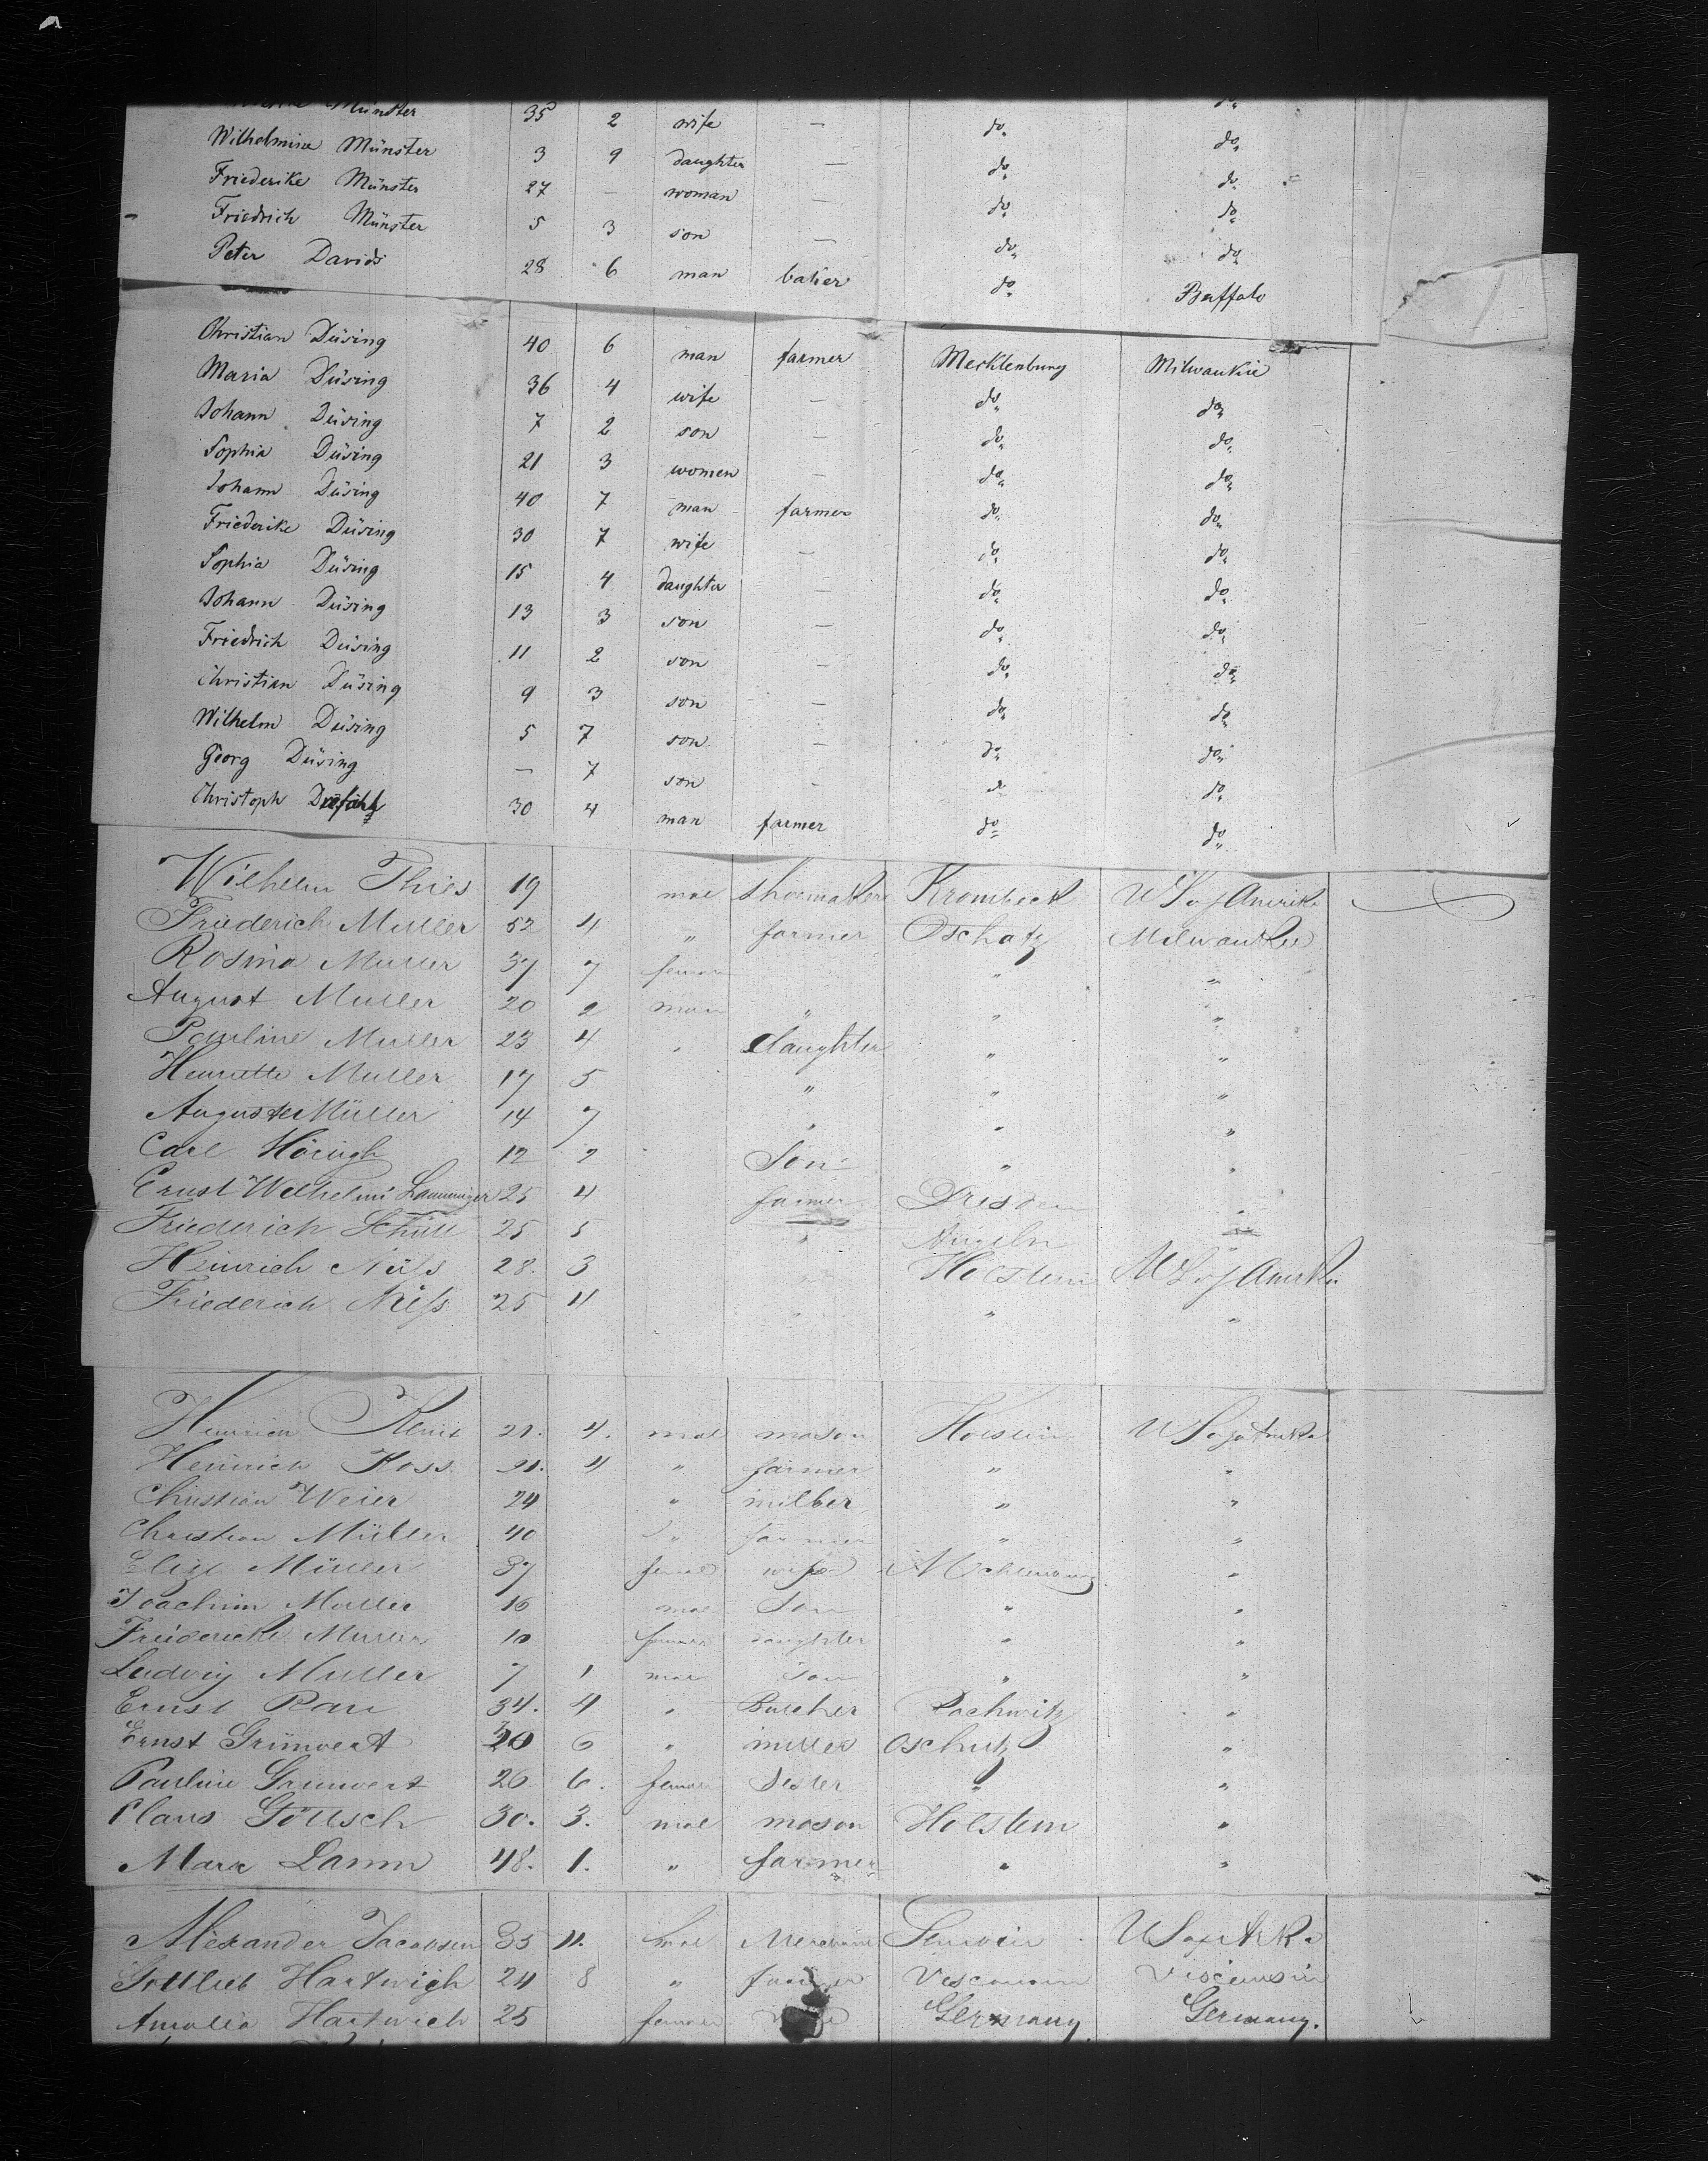 Münster 35 2 wife — do. do.
Wilhelmine Münster 3 9 daughter — do. do.
Friederike Münster 27 — woman — do. do.
Friedrich Münster 5 3 son — do. do.
Peter Davids 28 6 man baker do. Buffalo
Christian Düsing 40 6 man farmer Mecklenburg Milwaukie
Maria Düsing 36 4 wife — do. do.
Johann Düsing 7 2 son — do. do.
Sophia Düsing 21 3 women — do. do.
Johann Düsing 40 7 man farmer do. do.
Friederike Düsing 30 7 wife — do. do.
Sophia Düsing 15 4 daughter — do. do.
Johann Düsing 13 3 son — do. do.
Friedrich Düsing 11 2 son — do. do.
Christian Düsing 9 3 son — do. do.
Wilhelm Düsing 5 7 son — do. do.
Georg Düsing — 7 son — do. do.
Christoph 30 4 man farmer do. do.
Wilhelm Thies 19 mal shoemaker Krombeck
Friederich Muller 52 4 " farmer Oschatz Milwaukee
Rosina Muller 37 7 " "
August Muller 20 2 man " " "
Pauline Muller 23 4 " daughter " "
Henriette Muller 17 5 " " "
Auguste Müller 14 7 " " "
Carl 12 2 Son " "
Ernst Wilhelm 25 4 farmer Dresden "
Friederich Schütt 25 5 " "
Heinrich 28. 3 Holstein
Friederich 25 4 " " "
Heinrich 21. 4. mal mason Holstein
Heinrich Koss 21. 4 " farmer " "
Christian Weier 24 " miller " "
Christian Müller 40 " farmer " "
Elise Müller 37 wife "
Joachim Muller 16 mal Son " "
Friedericke Muller 10 daughter " "
Ludvig Muller 7 1 mal son " "
Ernst Rau 34. 4 " Butcher "
Ernst 6 " miller Oschutz "
Pauline 26 6. Sister " "
Claus Göttsch 30. 3. mal mason Holstein "
Marx Lamm 48. 1. " farmer " "
Alexander Jacobsen 35 11. mal
Gottlieb Hartwigh 24 8 " Visconsin
Amalia Hartwich 25 Germany Germany.